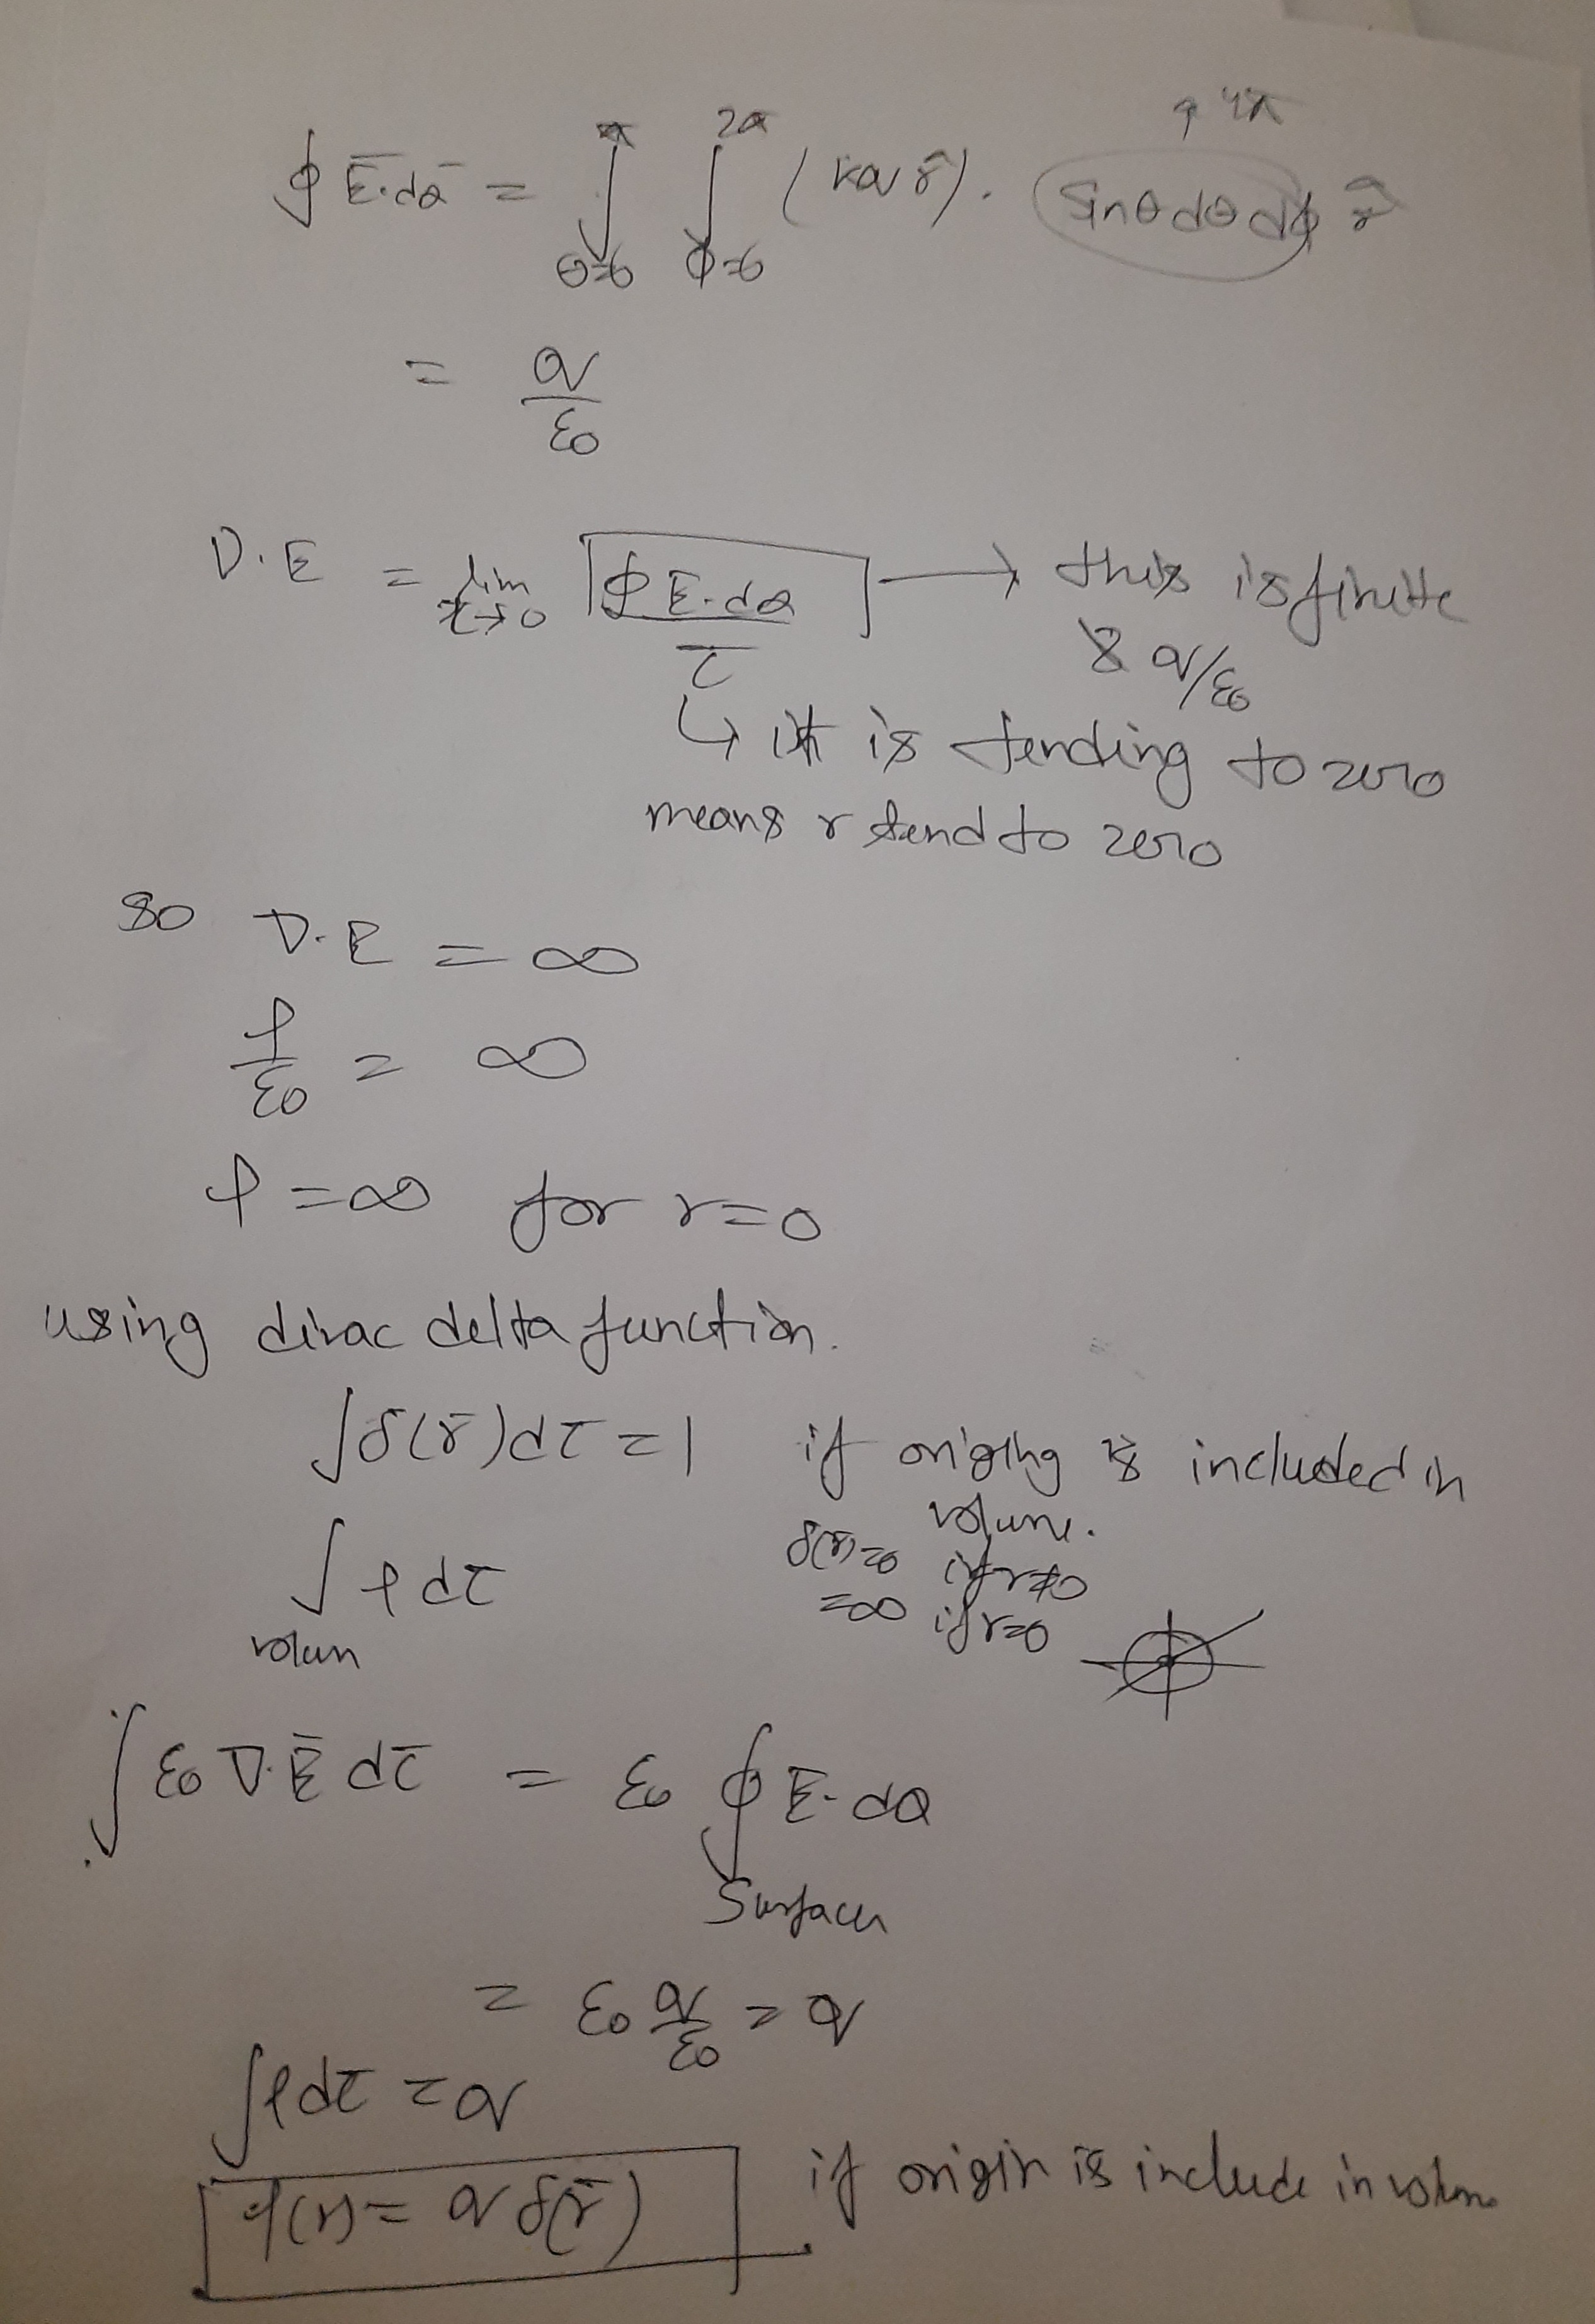 ↑ 4π
∮ Ē·dā = ∫θ=0^π ∫φ=0^2π (kq r̂). (sinθ dθ dφ r̂
= q/ε0
∇·E = lim τ→0 [∮ E·da / τ] → this is finite
& q/ε0
↳ it is tending to zero
means r tend to zero
so ∇·E = ∞
ρ/ε0 = ∞
ρ = ∞ for r=0
using dirac delta function.
∫δ(r̄)dτ = 1 if origing is included in
volume.
δ(r)=0 if r≠0
=∞ if r=0
∫ρdτ
volum
∫ε0 ∇·Ē dτ = ε0 ∮ E·da
Surface
= ε0 q/ε0 = q
∫ρdτ = q
ρ(r) = q δ(r̄) if origin is include in volume